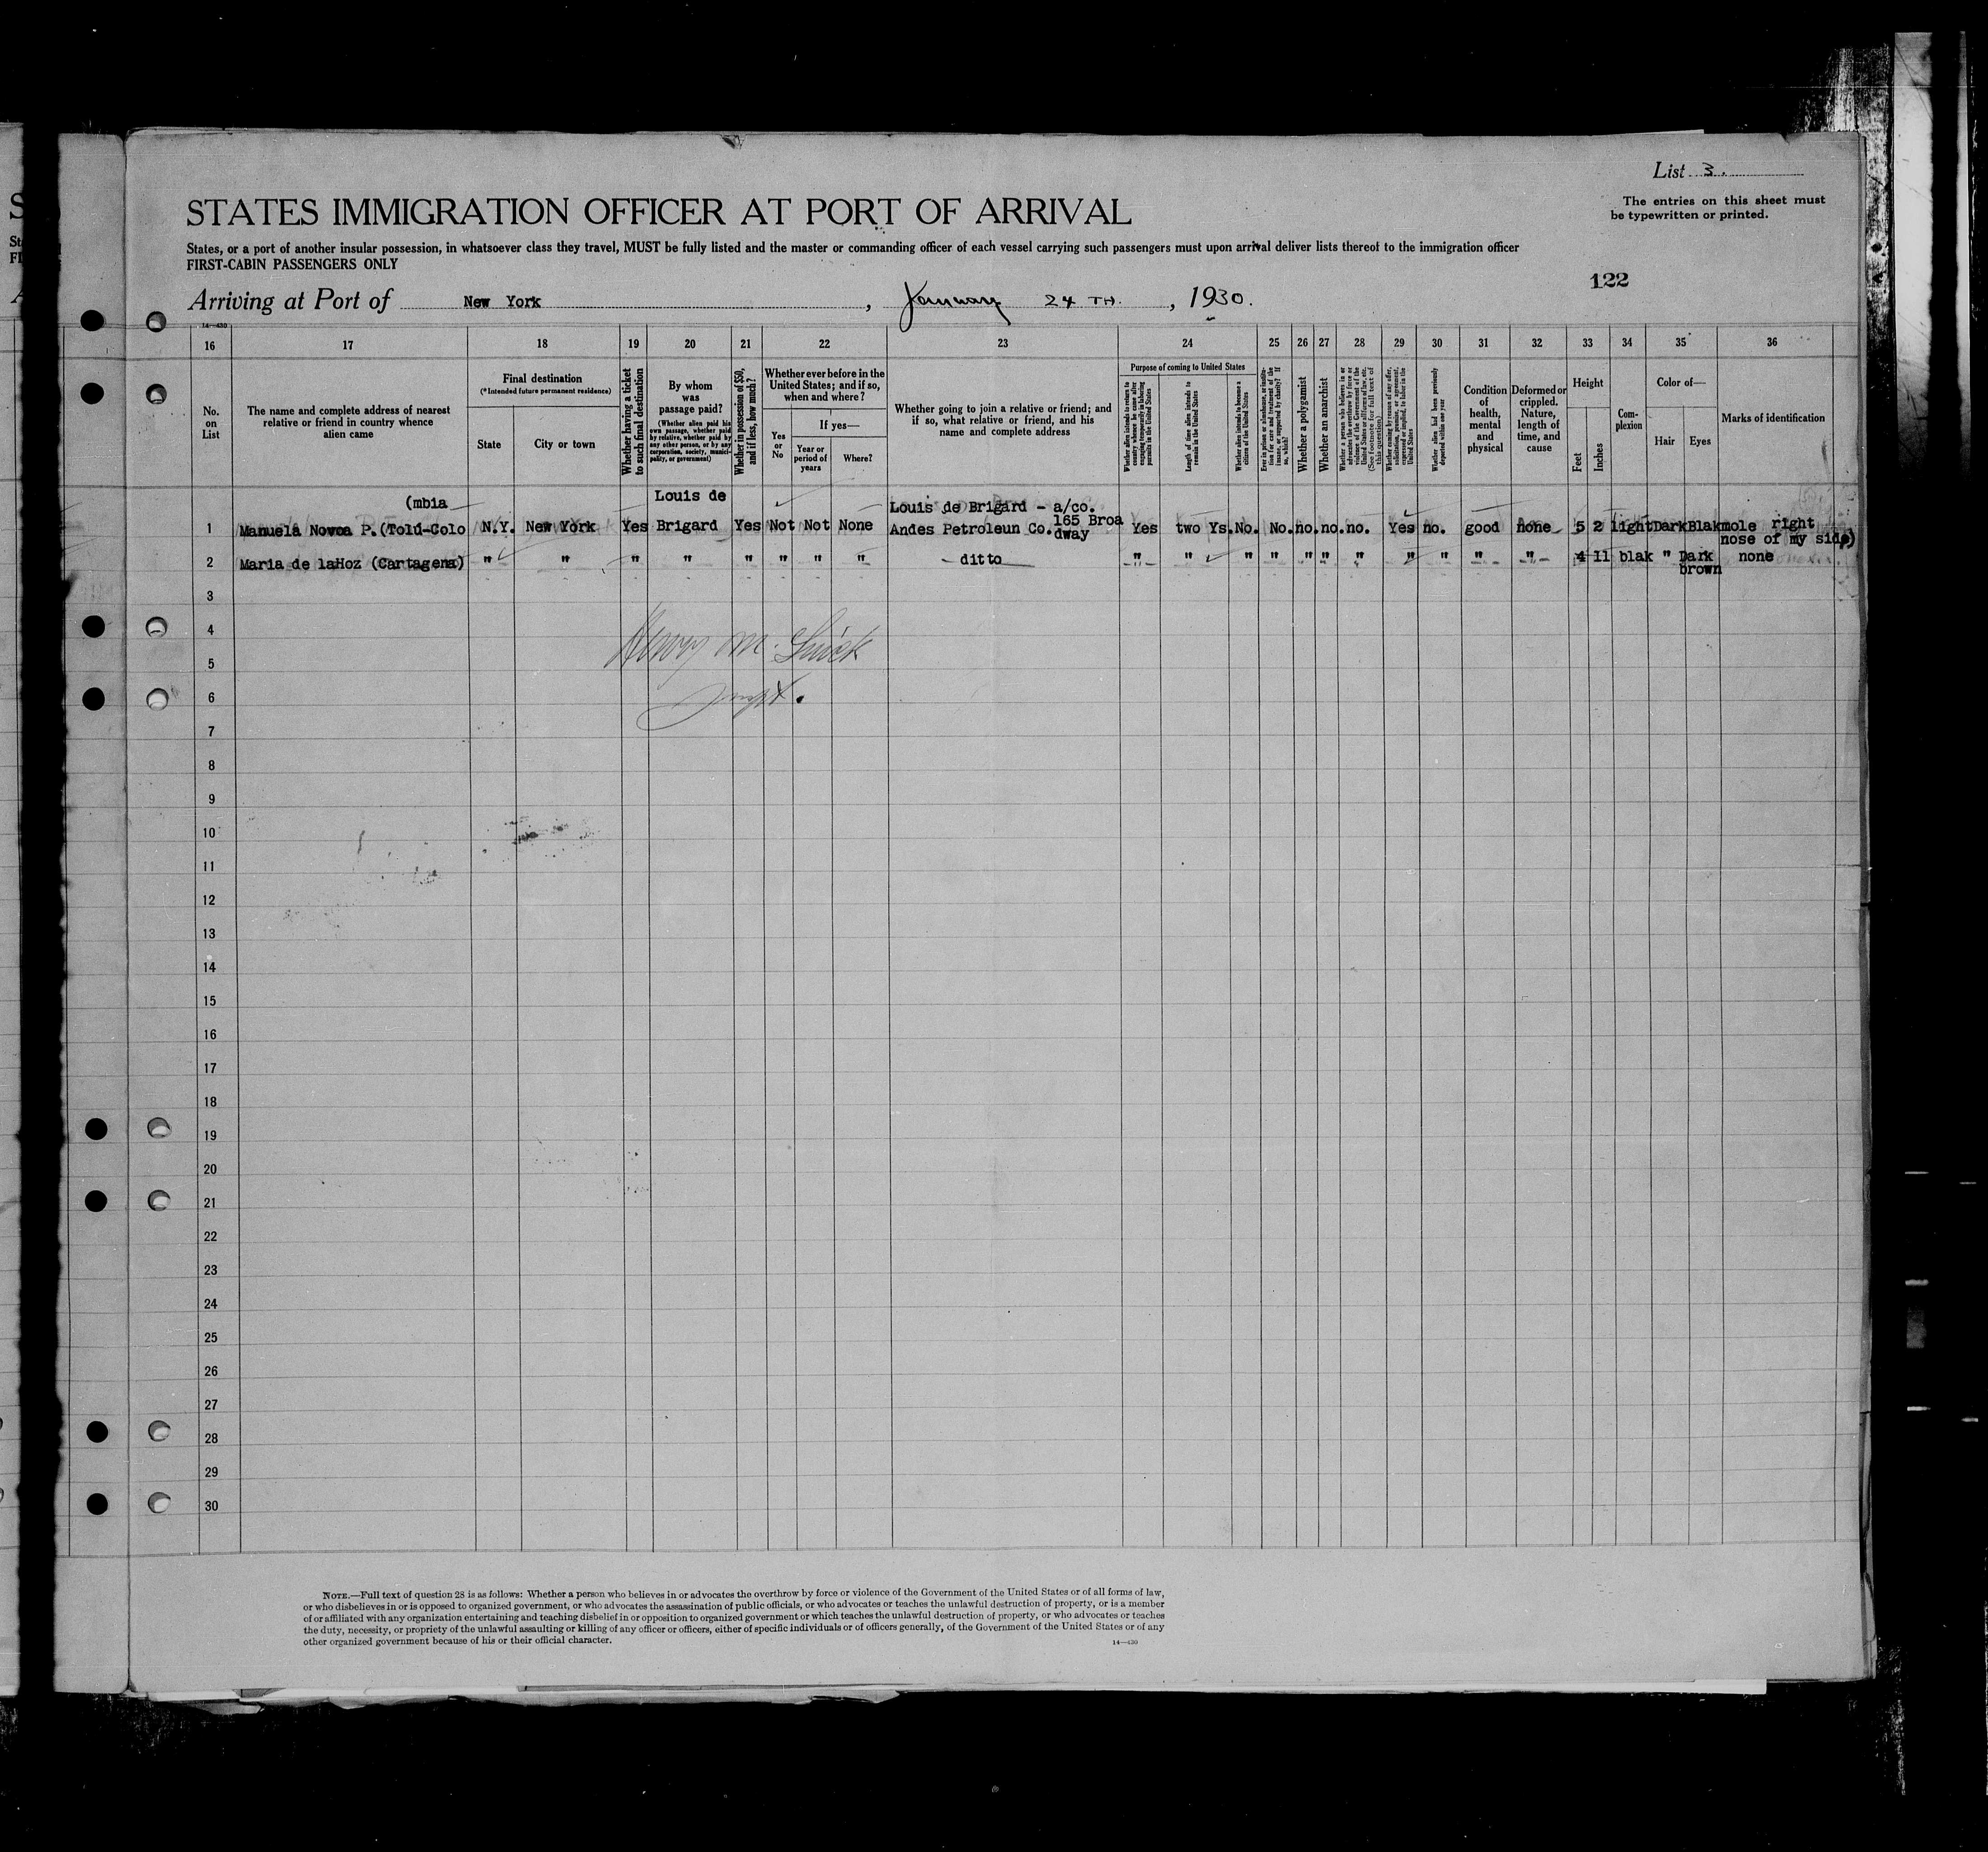 List 3.
STATES IMMIGRATION OFFICER AT PORT OF ARRIVAL
The entries on this sheet must
be typewritten or printed.
States, or a port of another insular possession, in whatsoever class they travel, MUST be fully listed and the master or commanding officer of each vessel carrying such passengers must upon arrival deliver lists thereof to the immigration officer
FIRST-CABIN PASSENGERS ONLY
122
Arriving at Port of New York, January 24 TH., 1930.
14—430
16 17 18 19 20 21 22 23 24 25 26 27 28 29 30 31 32 33 34 35 36
No. on List
The name and complete address of nearest relative or friend in country whence alien came
Final destination
(*Intended future permanent residence)
State
City or town
Whether having a ticket to such final destination
By whom was passage paid?
(Whether alien paid his own passage, whether paid by relative, whether paid by any other person, or by any corporation, society, municipality, or government)
Whether in possession of $50, and if less, how much?
Whether ever before in the United States; and if so, when and where?
Yes or No
If yes—
Year or period of years
Where?
Whether going to join a relative or friend; and if so, what relative or friend, and his name and complete address
Purpose of coming to United States
Whether alien intends to return to country whence he came after engaging temporarily in laboring pursuits in the United States
Length of time alien intends to remain in the United States
Whether alien intends to become a citizen of the United States
Ever in prison or almshouse, or institution for care and treatment of the insane, or supported by charity? If so, which?
Whether a polygamist
Whether an anarchist
Whether a person who believes in or advocates the overthrow by force or violence of the Government of the United States or all forms of law, etc. (See footnote for full text of this question)
Whether coming by reason of any offer, solicitation, promise, or agreement, expressed or implied, to labor in the United States
Whether alien had been previously deported within one year
Condition of health, mental and physical
Deformed or crippled. Nature, length of time, and cause
Height
Feet
Inches
Complexion
Color of—
Hair
Eyes
Marks of identification
(mbia Louis de Louis de Brigard - a/co.
1 Manuela Novoa P.(Tolú-Colo N.Y. New York Yes Brigard Yes Not Not None Andes Petroleun Co. 165 Broa dway Yes two Ys. No. No. no. no. no. Yes no. good none 5 2 light Dark Blak mole right
nose of my side)
2 Maria de laHoz (Cartagena) " " " " " " " " ditto " " " " " " " " " " " 4 11 blak " Dark none
brown
3
4
Henry M.
5
6
7
8
9
10
11
12
13
14
15
16
17
18
19
20
21
22
23
24
25
26
27
28
29
30
NOTE.—Full text of question 28 is as follows: Whether a person who believes in or advocates the overthrow by force or violence of the Government of the United States or of all forms of law,
or who disbelieves in or is opposed to organized government, or who advocates the assassination of public officials, or who advocates or teaches the unlawful destruction of property, or is a member
of or affiliated with any organization entertaining and teaching disbelief in or opposition to organized government or which teaches the unlawful destruction of property, or who advocates or teaches
the duty, necessity, or propriety of the unlawful assaulting or killing of any officer or officers, either of specific individuals or of officers generally, of the Government of the United States or of any
other organized government because of his or their official character.
14—430